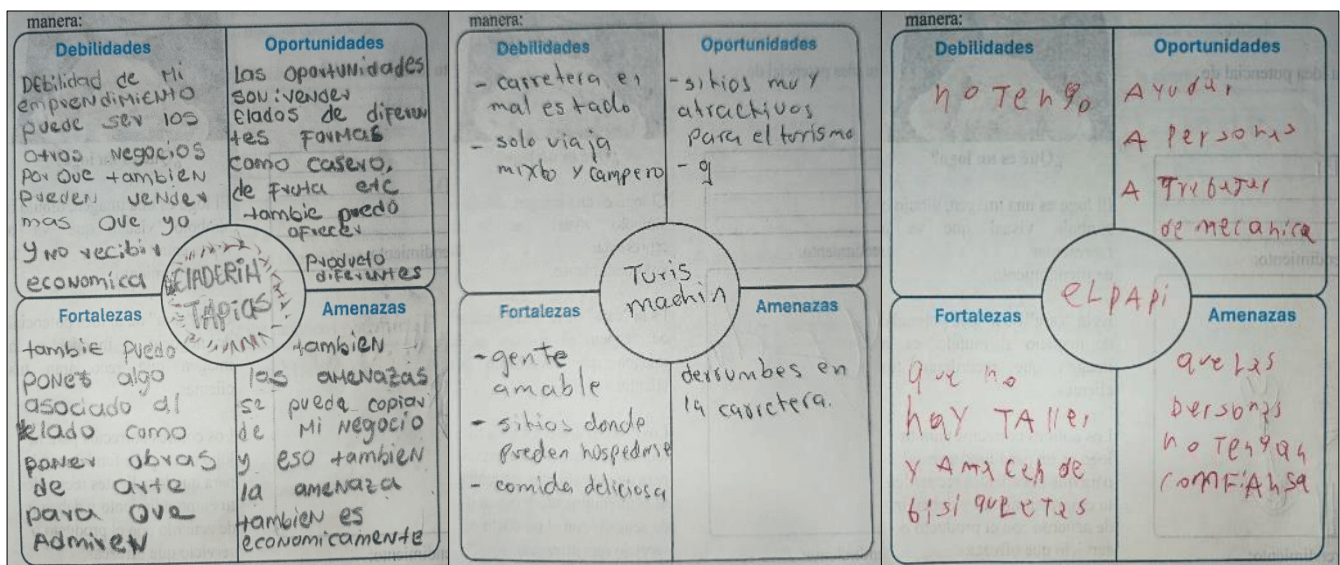 manera:
Debilidades
DEbilidad de Mi
emprENdiMiENto
puede SEr los
otros Negocios
Por Que tambien
pueden venDer
mas Que yo
y No recibir
economica
Oportunidades
Las oportunidades
son: vender
Elados de diferen
tes Formas
como casero,
de Fruta etc
tambie puedo
ofrecer
Producto
diferentes
TAPiAS
Fortalezas
tambie puedo
poner algo
asociado al
elado como
poner obras
de arte
para Que
Admiren
Amenazas
tambien
las amenazas
se pueda copiar
de Mi Negocio
y eso tambien
la amenaza
tambien es
economicamente
manera:
Debilidades
- carretera en
mal estado
- solo viaja
mixto y campero
Oportunidades
- sitios muy
atractivos
para el torismo
- g
Turis
machin
Fortalezas
- gente
amable
- sitios donde
pueden hospedarse
- comida deliciosa
Amenazas
derrumbes en
la carretera.
manera:
Debilidades
no Tengo
Oportunidades
Ayudar
A personas
A Trabajar
de mecanica
eLpApi
Fortalezas
que no
hay TAller
y AmAcen de
bisi quletas
Amenazas
que Las
personas
no Tengan
comFiAnsa